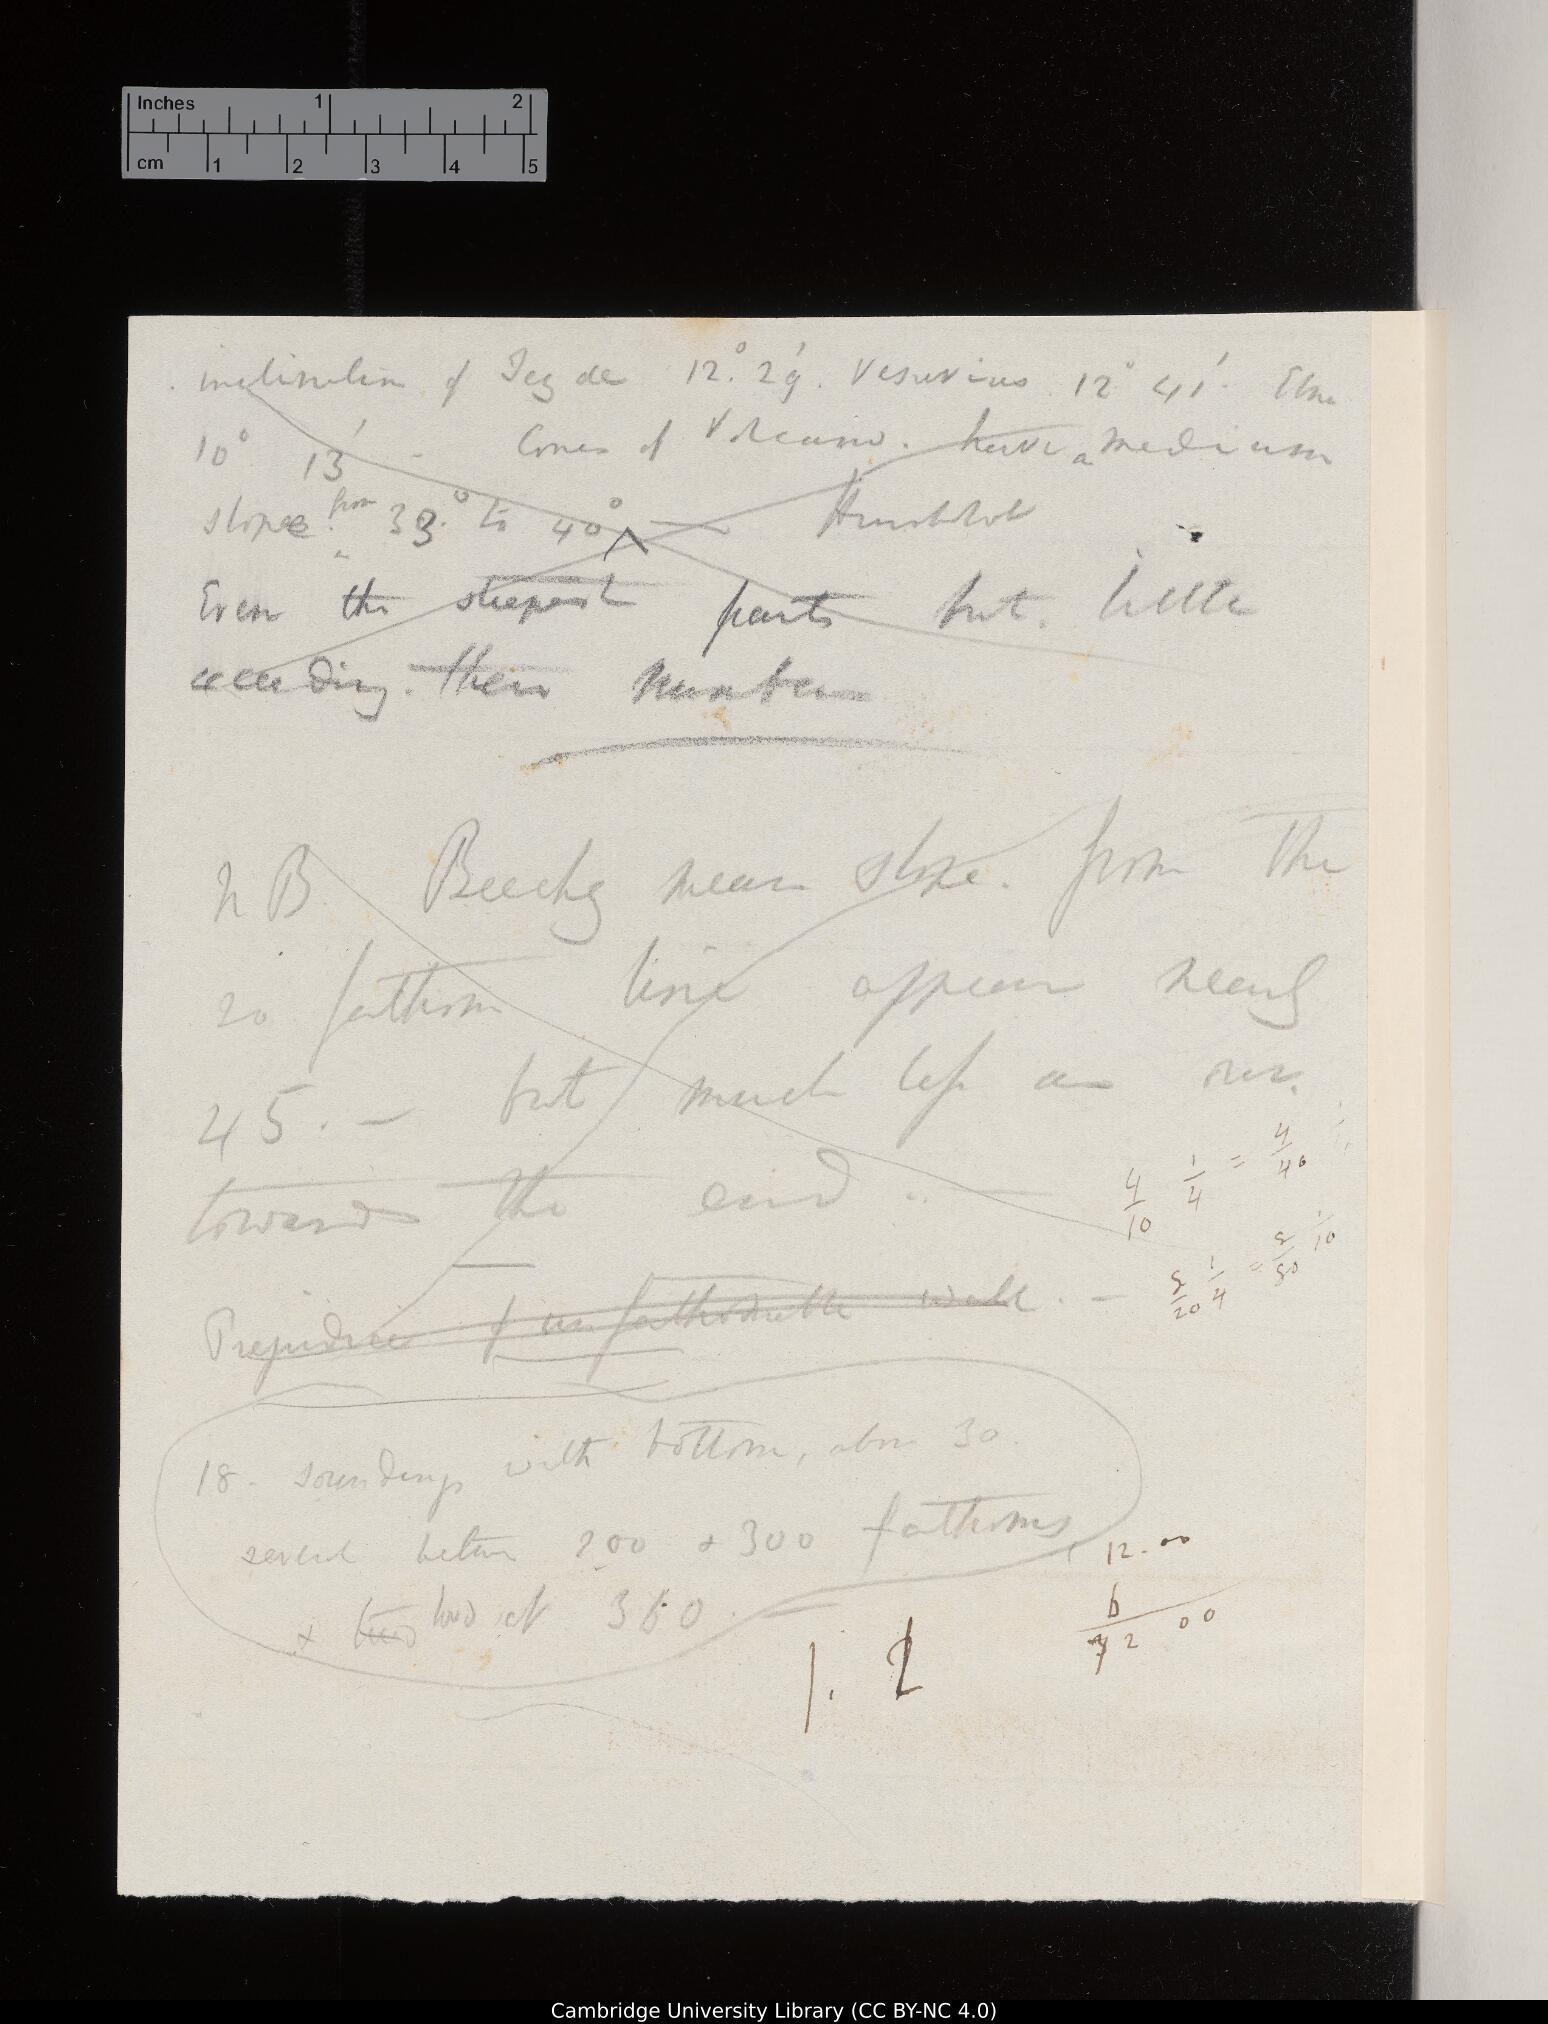 Inches 1 2
cm 1 2 3 4 5
inclination of Teyde 12° 29'. Vesuvius 12° 41' Etna
10° 13' - Cones of Volcano. have a medium
slope from 33° to 40° — Humboldt
Even the steepest parts but little
exceeding these number
NB Beechy mean slope from the
20 fathom line appear nearly
45. — but much less as one
towards the end .. —
Prejudice of unfathomable wall. —
4/10 1/4 = 4/40
1/4 = 10
18 - soundings with bottom, above 30
several between 200 & 300 fathoms
& two two at 360. —
12.00
6
72 00
1. 2
Cambridge University Library (CC BY-NC 4.0)